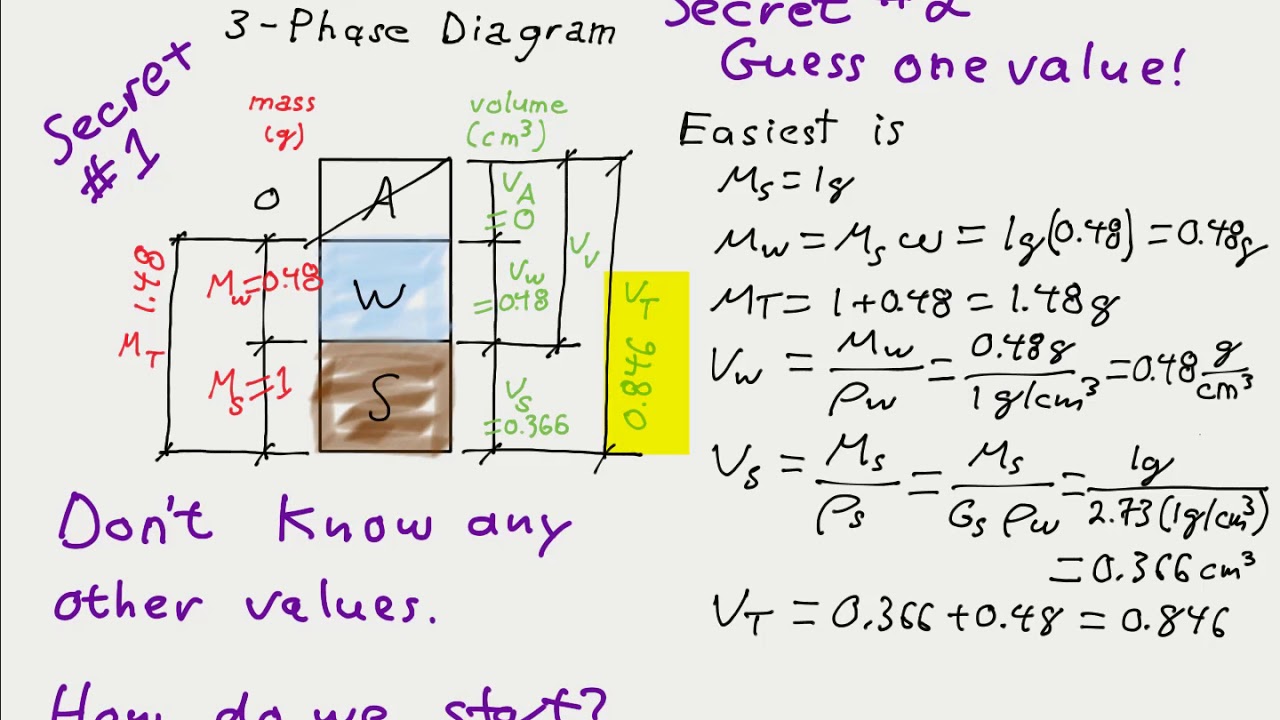 3-Phase Diagram
Secret #2
Guess one value!
Secret
#1
mass
(g)
volume
(cm³)
0
A
V_A
= 0
M_w=0.48
W
V_w
= 0.48
V_v
M_s=1
S
V_s
=0.366
M_T 1.48
V_T 0.846
Easiest is
M_s = 1g
M_w = M_s ω = 1g(0.48) = 0.48g
MT = 1+0.48 = 1.48g
V_w = M_w/ρ_w = 0.48g/1g/cm³ = 0.48 g/cm³
V_s = M_s/ρ_s = M_s/G_s ρ_w = 1g/2.73(1g/cm³)
= 0.366 cm³
V_T = 0.366 + 0.48 = 0.846
Don't know any
other values.
How do we start?